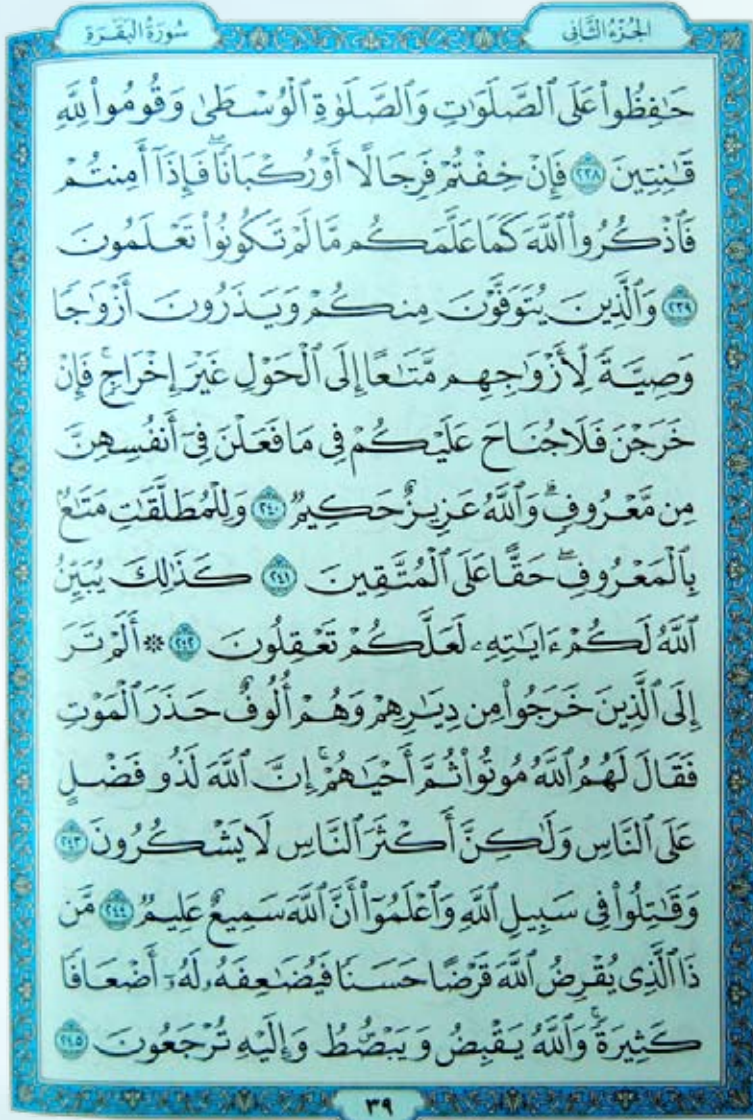 الجُزْءُ الثَّانِي
سُورَةُ البَقَرَةِ
حَـٰفِظُوا۟ عَلَى ٱلصَّلَوَٰتِ وَٱلصَّلَوٰةِ ٱلْوُسْطَىٰ وَقُومُوا۟ لِلَّهِ
قَـٰنِتِينَ ٢٣٨ فَإِنْ خِفْتُمْ فَرِجَالًا أَوْ رُكْبَانًا ۖ فَإِذَآ أَمِنتُمْ
فَٱذْكُرُوا۟ ٱللَّهَ كَمَا عَلَّمَكُم مَّا لَمْ تَكُونُوا۟ تَعْلَمُونَ
٢٣٩ وَٱلَّذِينَ يُتَوَفَّوْنَ مِنكُمْ وَيَذَرُونَ أَزْوَٰجًا
وَصِيَّةً لِّأَزْوَٰجِهِم مَّتَـٰعًا إِلَى ٱلْحَوْلِ غَيْرَ إِخْرَاجٍ ۚ فَإِنْ
خَرَجْنَ فَلَا جُنَاحَ عَلَيْكُمْ فِى مَا فَعَلْنَ فِىٓ أَنفُسِهِنَّ
مِن مَّعْرُوفٍ ۗ وَٱللَّهُ عَزِيزٌ حَكِيمٌ ٢٤٠ وَلِلْمُطَلَّقَـٰتِ مَتَـٰعٌۢ
بِٱلْمَعْرُوفِ ۖ حَقًّا عَلَى ٱلْمُتَّقِينَ ٢٤١ كَذَٰلِكَ يُبَيِّنُ
ٱللَّهُ لَكُمْ ءَايَـٰتِهِۦ لَعَلَّكُمْ تَعْقِلُونَ ٢٤٢ ۞ أَلَمْ تَرَ
إِلَى ٱلَّذِينَ خَرَجُوا۟ مِن دِيَـٰرِهِمْ وَهُمْ أُلُوفٌ حَذَرَ ٱلْمَوْتِ
فَقَالَ لَهُمُ ٱللَّهُ مُوتُوا۟ ثُمَّ أَحْيَـٰهُمْ ۚ إِنَّ ٱللَّهَ لَذُو فَضْلٍ
عَلَى ٱلنَّاسِ وَلَـٰكِنَّ أَكْثَرَ ٱلنَّاسِ لَا يَشْكُرُونَ ٢٤٣
وَقَـٰتِلُوا۟ فِى سَبِيلِ ٱللَّهِ وَٱعْلَمُوٓا۟ أَنَّ ٱللَّهَ سَمِيعٌ عَلِيمٌ ٢٤٤ مَّن
ذَا ٱلَّذِى يُقْرِضُ ٱللَّهَ قَرْضًا حَسَنًا فَيُضَـٰعِفَهُۥ لَهُۥٓ أَضْعَافًا
كَثِيرَةً ۚ وَٱللَّهُ يَقْبِضُ وَيَبْصُۜطُ وَإِلَيْهِ تُرْجَعُونَ ٢٤٥
٣٩